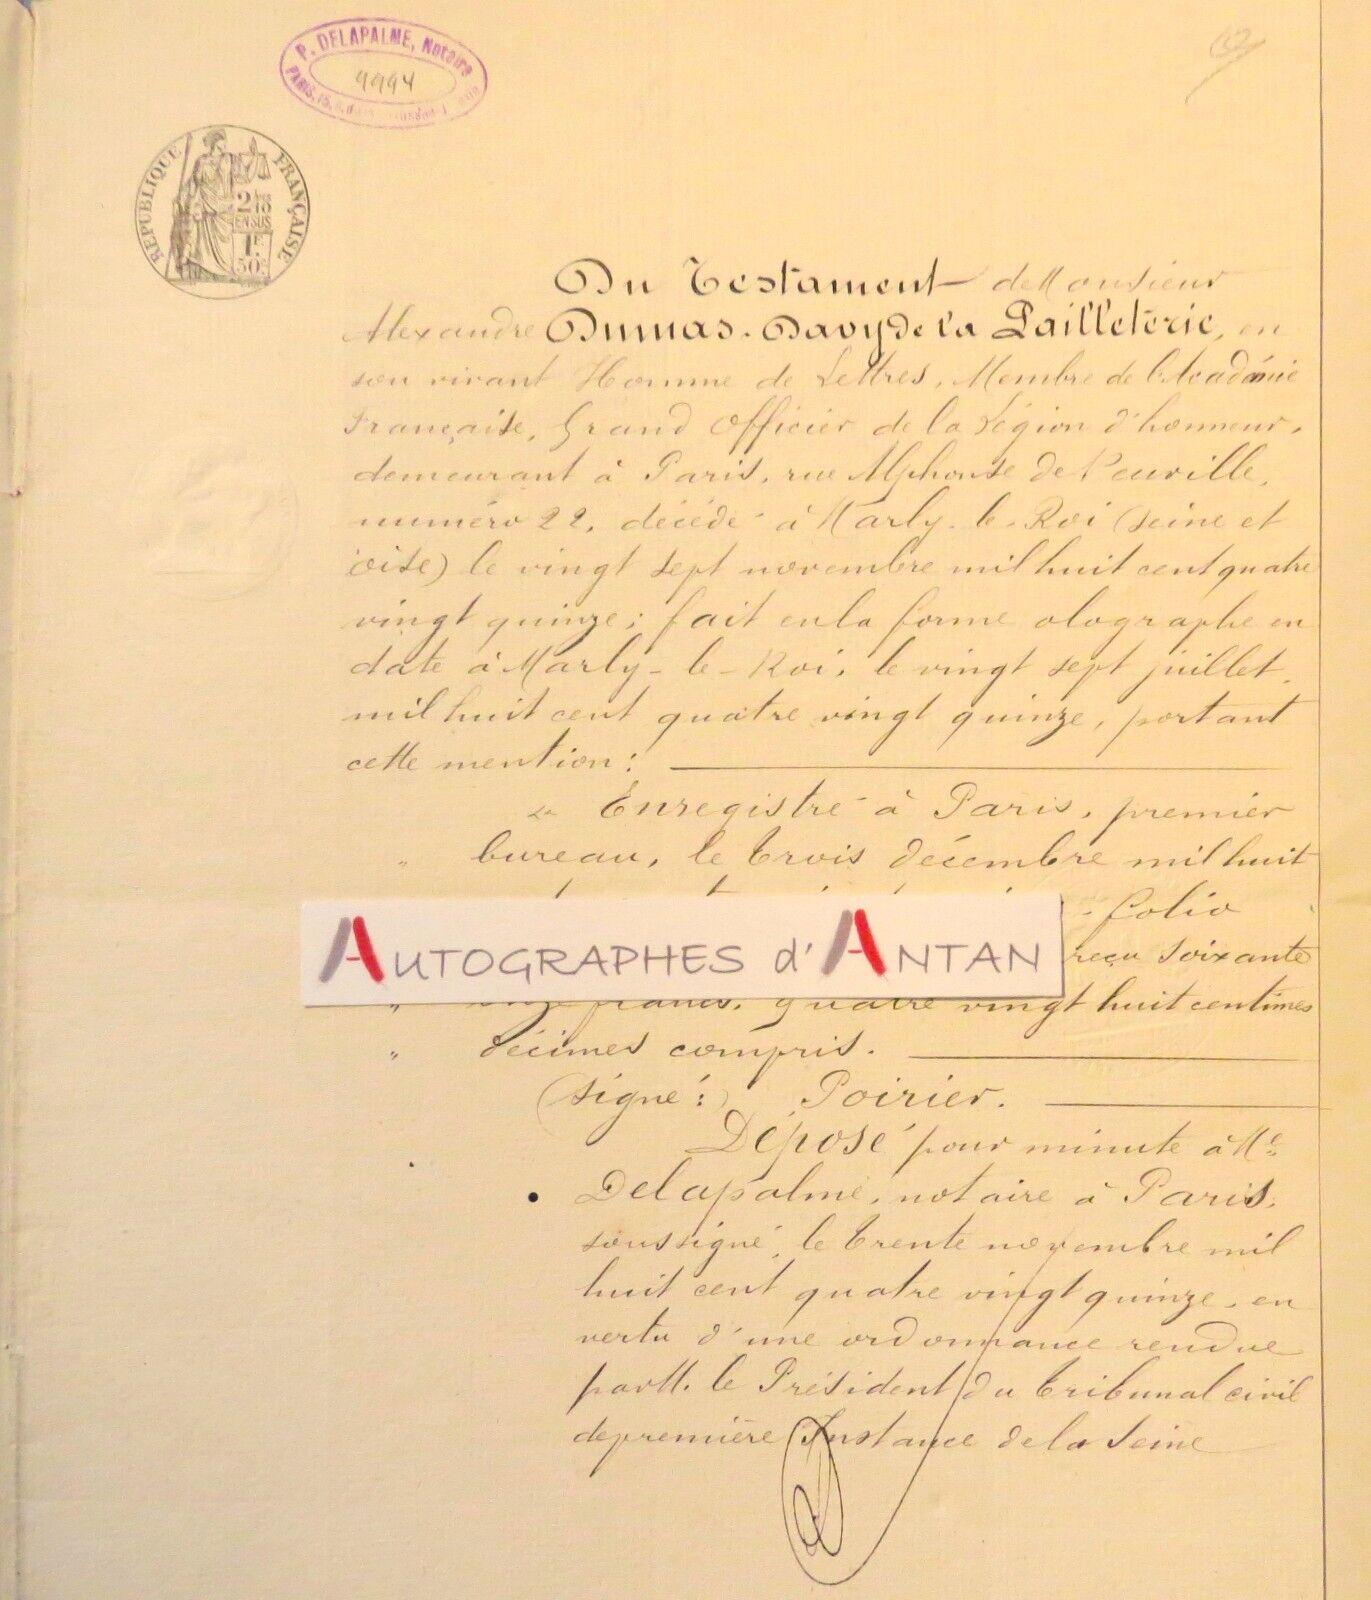 P. DELAPALME, Notaire
9994
PARIS, 15,
RÉPUBLIQUE FRANÇAISE
2/10
EN SUS
1F
50c
Du Testament de Monsieur
Alexandre Dumas-Davy de la Pailleterie, en
son vivant Homme de Lettres, Membre de l'Académie
Française, Grand Officier de la Légion d'honneur,
demeurant à Paris, rue Alphonse de Neuville,
numéro 22, décédé à Marly-le-Roi (Seine et
oise) le vingt sept novembre mil huit cent quatre
vingt quinze; fait en la forme olographe en
date à Marly-le-Roi, le vingt sept juillet
mil huit cent quatre vingt quinze, portant
cette mention:
" Enregistré à Paris, premier
" bureau, le trois décembre mil huit
folio
reçu soixante
" onze francs, quatre vingt huit centimes
" décimes compris.
(signé:) Poirier.
Déposé pour minute à Me
Delapalme, notaire à Paris,
soussigné, le trente novembre mil
huit cent quatre vingt quinze, en
vertu d'une ordonnance rendue
par M. le Président du tribunal civil
de première Instance de la Seine
AUTOGRAPHES d'ANTAN